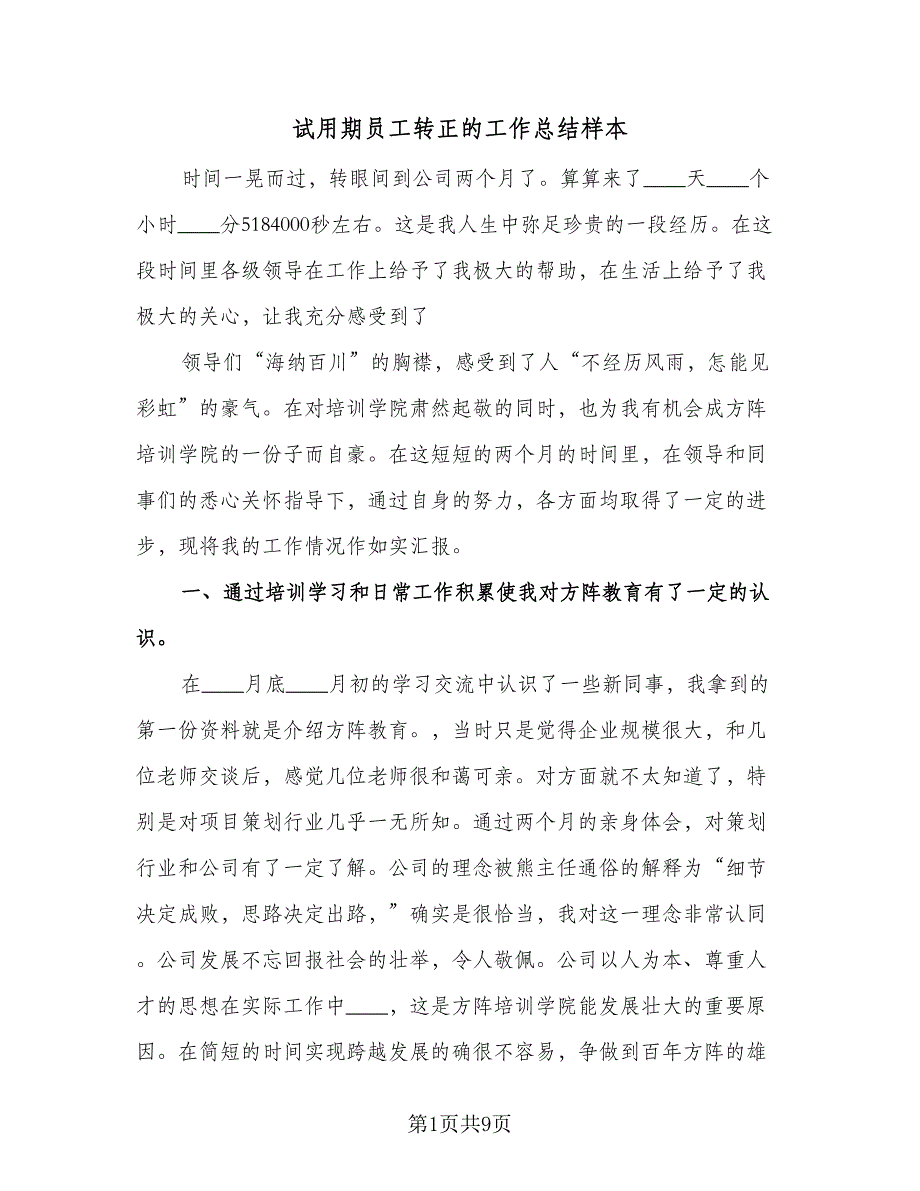 试用期员工转正的工作总结样本
时间一晃而过，转眼间到公司两个月了。算算来了____天____个
小时____分5184000秒左右。这是我人生中弥足珍贵的一段经历。在这
段时间里各级领导在工作上给予了我极大的帮助，在生活上给予了我
极大的关心，让我充分感受到了
领导们“海纳百川”的胸襟，感受到了人“不经历风雨，怎能见
彩虹”的豪气。在对培训学院肃然起敬的同时，也为我有机会成方阵
培训学院的一份子而自豪。在这短短的两个月的时间里，在领导和同
事们的悉心关怀指导下，通过自身的努力，各方面均取得了一定的进
步，现将我的工作情况作如实汇报。
一、通过培训学习和日常工作积累使我对方阵教育有了一定的认
识。
在____月底____月初的学习交流中认识了一些新同事，我拿到的
第一份资料就是介绍方阵教育。，当时只是觉得企业规模很大，和几
位老师交谈后，感觉几位老师很和蔼可亲。对方面就不太知道了，特
别是对项目策划行业几乎一无所知。通过两个月的亲身体会，对策划
行业和公司有了一定了解。公司的理念被熊主任通俗的解释为“细节
决定成败，思路决定出路，”确实是很恰当，我对这一理念非常认同
。公司发展不忘回报社会的壮举，令人敬佩。公司以人为本、尊重人
才的思想在实际工作中____，这是方阵培训学院能发展壮大的重要原
因。在简短的时间实现跨越发展的确很不容易，争做到百年方阵的雄
第1页共9页